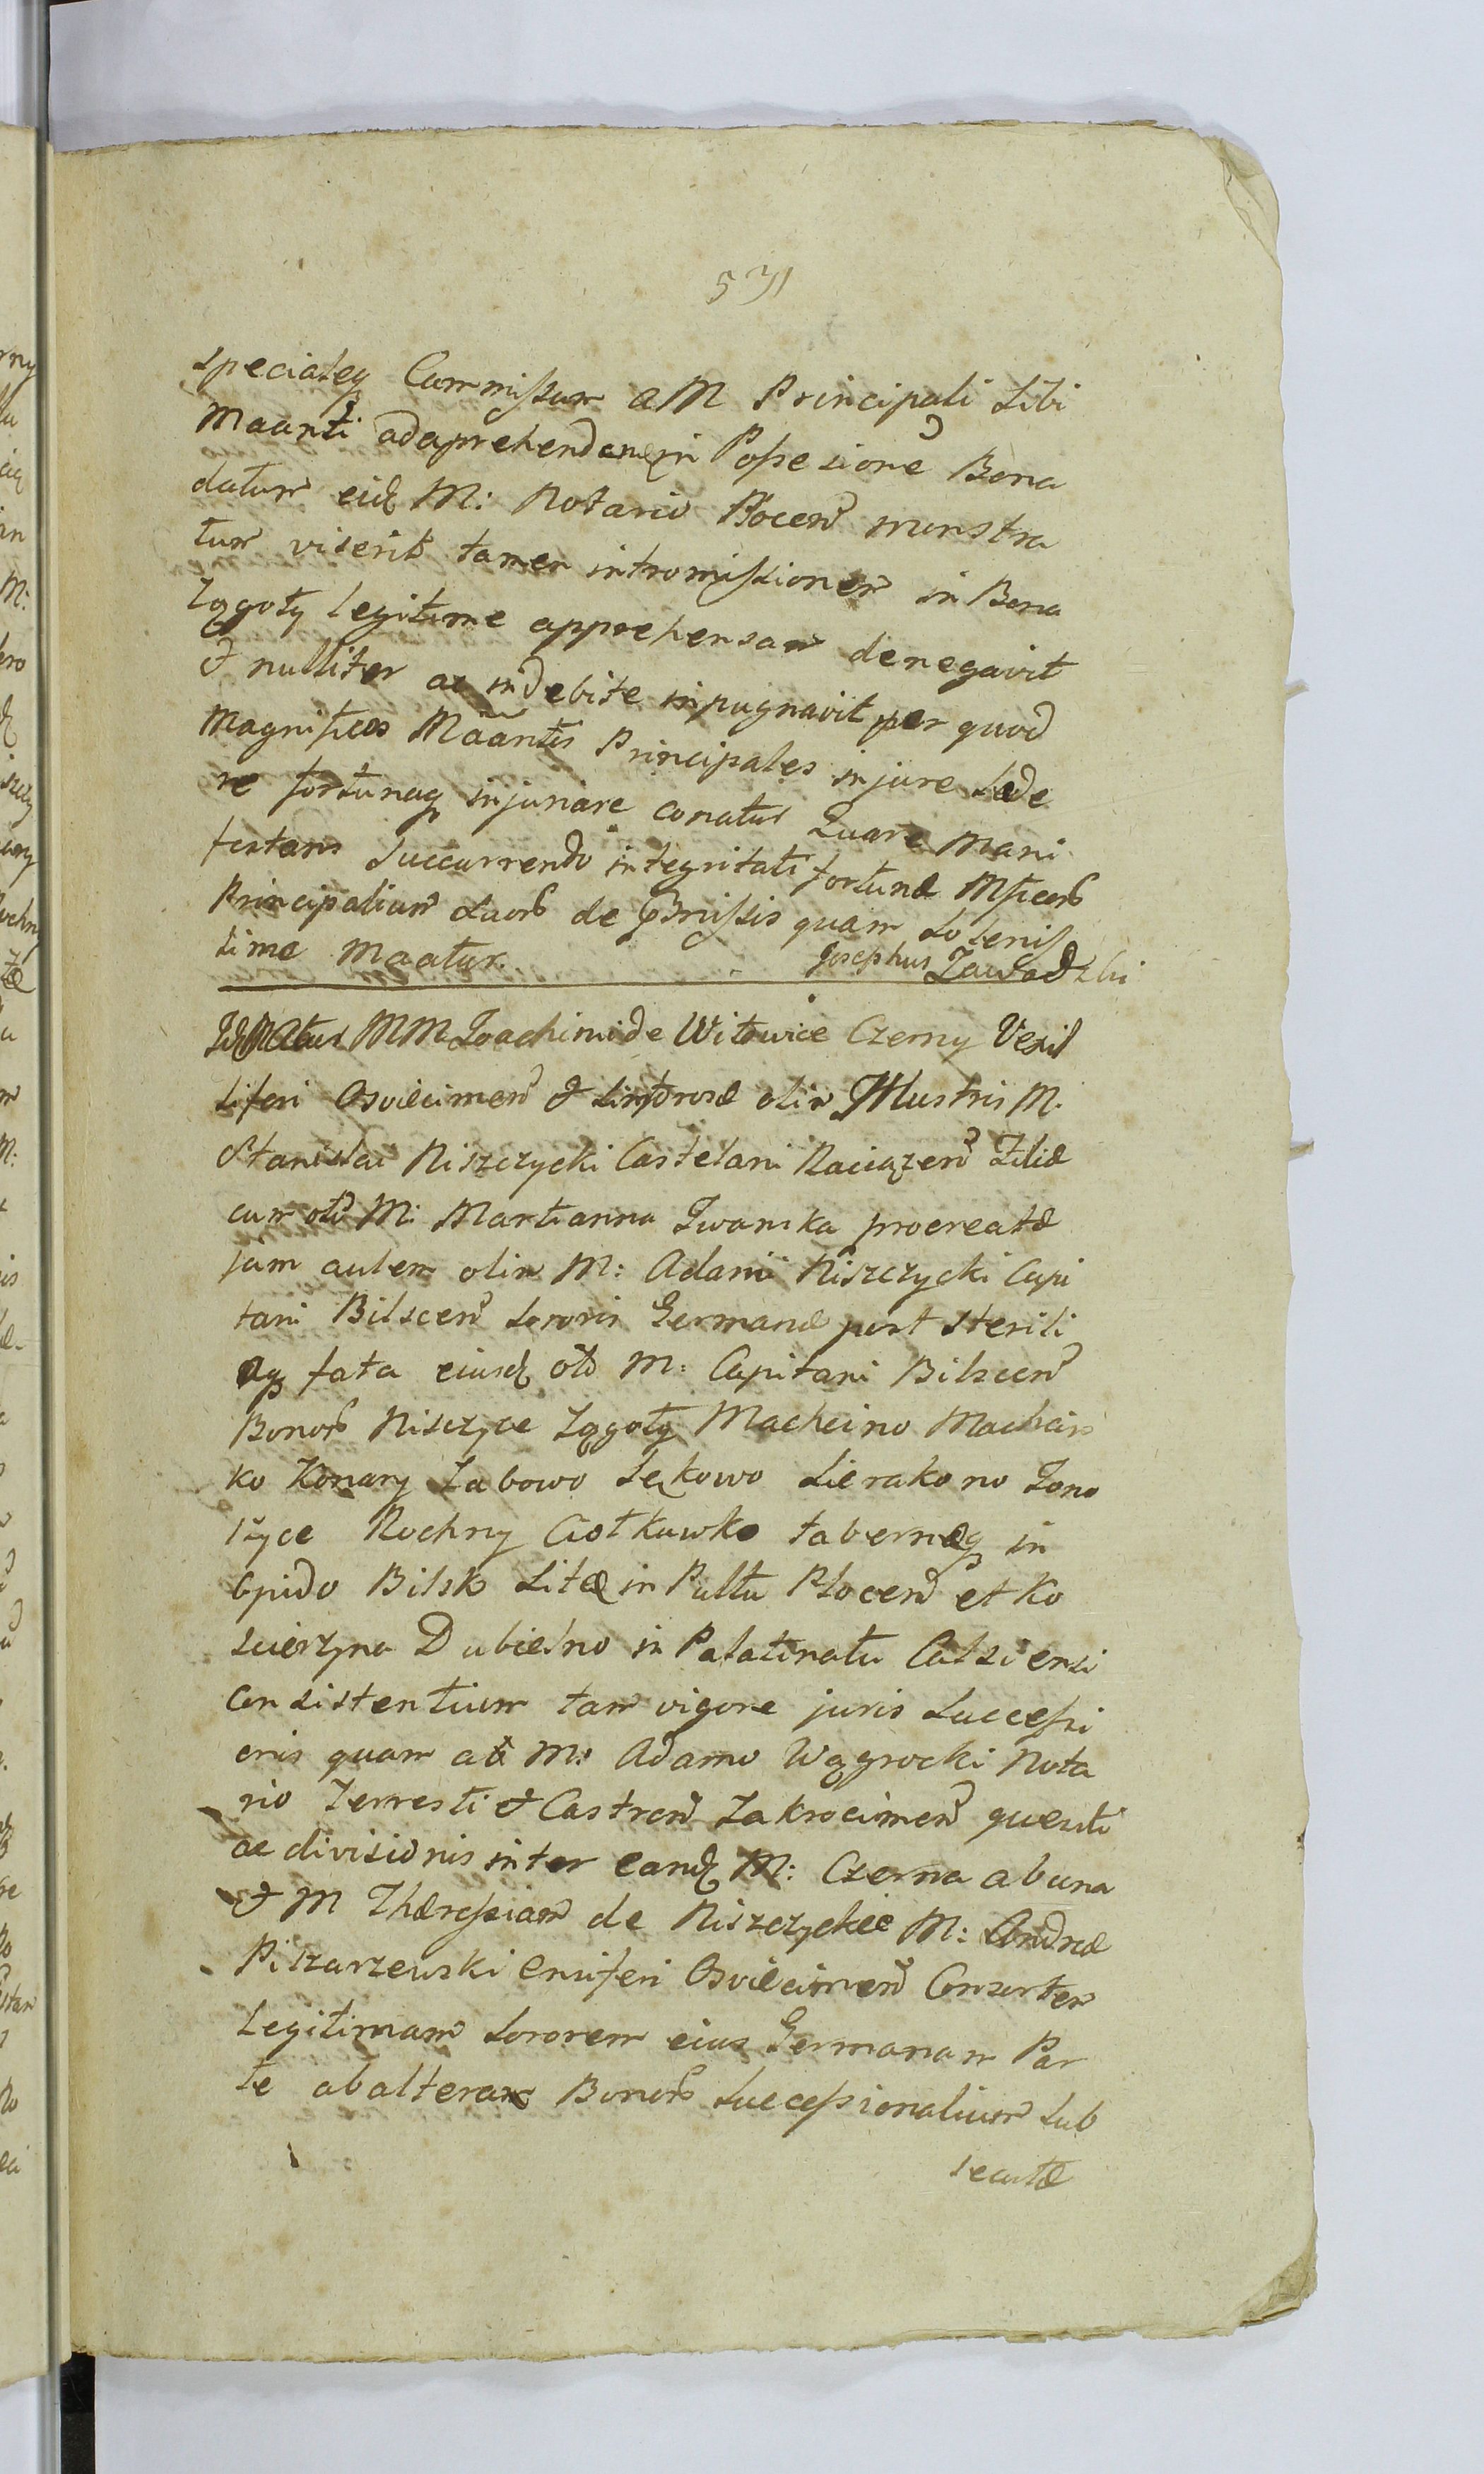 531
specialeq Commissum a M Principali sibi
Maanti ad aprehendenq in Possesione Bona
datum eidq M: Notario Plocen monstra
tum viderit tamen intromissionem in Bona
Zągoty legitime apprehensam denegavit
& nulliter ac indebite inpugnavit per quod
Magnificos Maantis Principales in jure læde
re fortunaq injuriare conatur Quare Mani
festans succurrendo integritati fortunæ Mficor
Principalium suor de Præmissis quam solenis
sime Maatur. Josephus Zawadzki
Id Matus MM Joachimi de Witowice Czerny Vexil
liferi Osviecimen & Ambrosæ olim Illustris M.
Stanislai Niszczycki Castelani Raciązen Filiæ
cum olim M: Martianna Iwanska procreatæ
jam autem olim M: Adami Niszczycki Capi
tani Bilscen sororis Germanæ post sterili
aq fata eiusdq olim M: Capitani Bilscen
Bonor Niszczyce Zągoty Machcino Machcin
ko Konary Zabowo Lękowo Sierakowo Gono
szyce Rochny Ciołkuwko tabernæq in
Opido Bilsk sitæ in Paltu Plocen et Ko
scierzyna Dubielno in Palatinatu Culsiensi
consistentium tam vigore juris successi
onis quam ab M: Adamo Wągrocki Nota
rio Terresti & Castren Zakrocimen quesiti
ac divisionis inter eandq M: Czerna ab una
& M Theressiam de Niszczyckie M: Andreæ
Piszarzewski Ensiferi Osviecimen Consortem
Legitimam sororem eius Germanam Par
te ab altera Bonor successionalium sub
secutæ